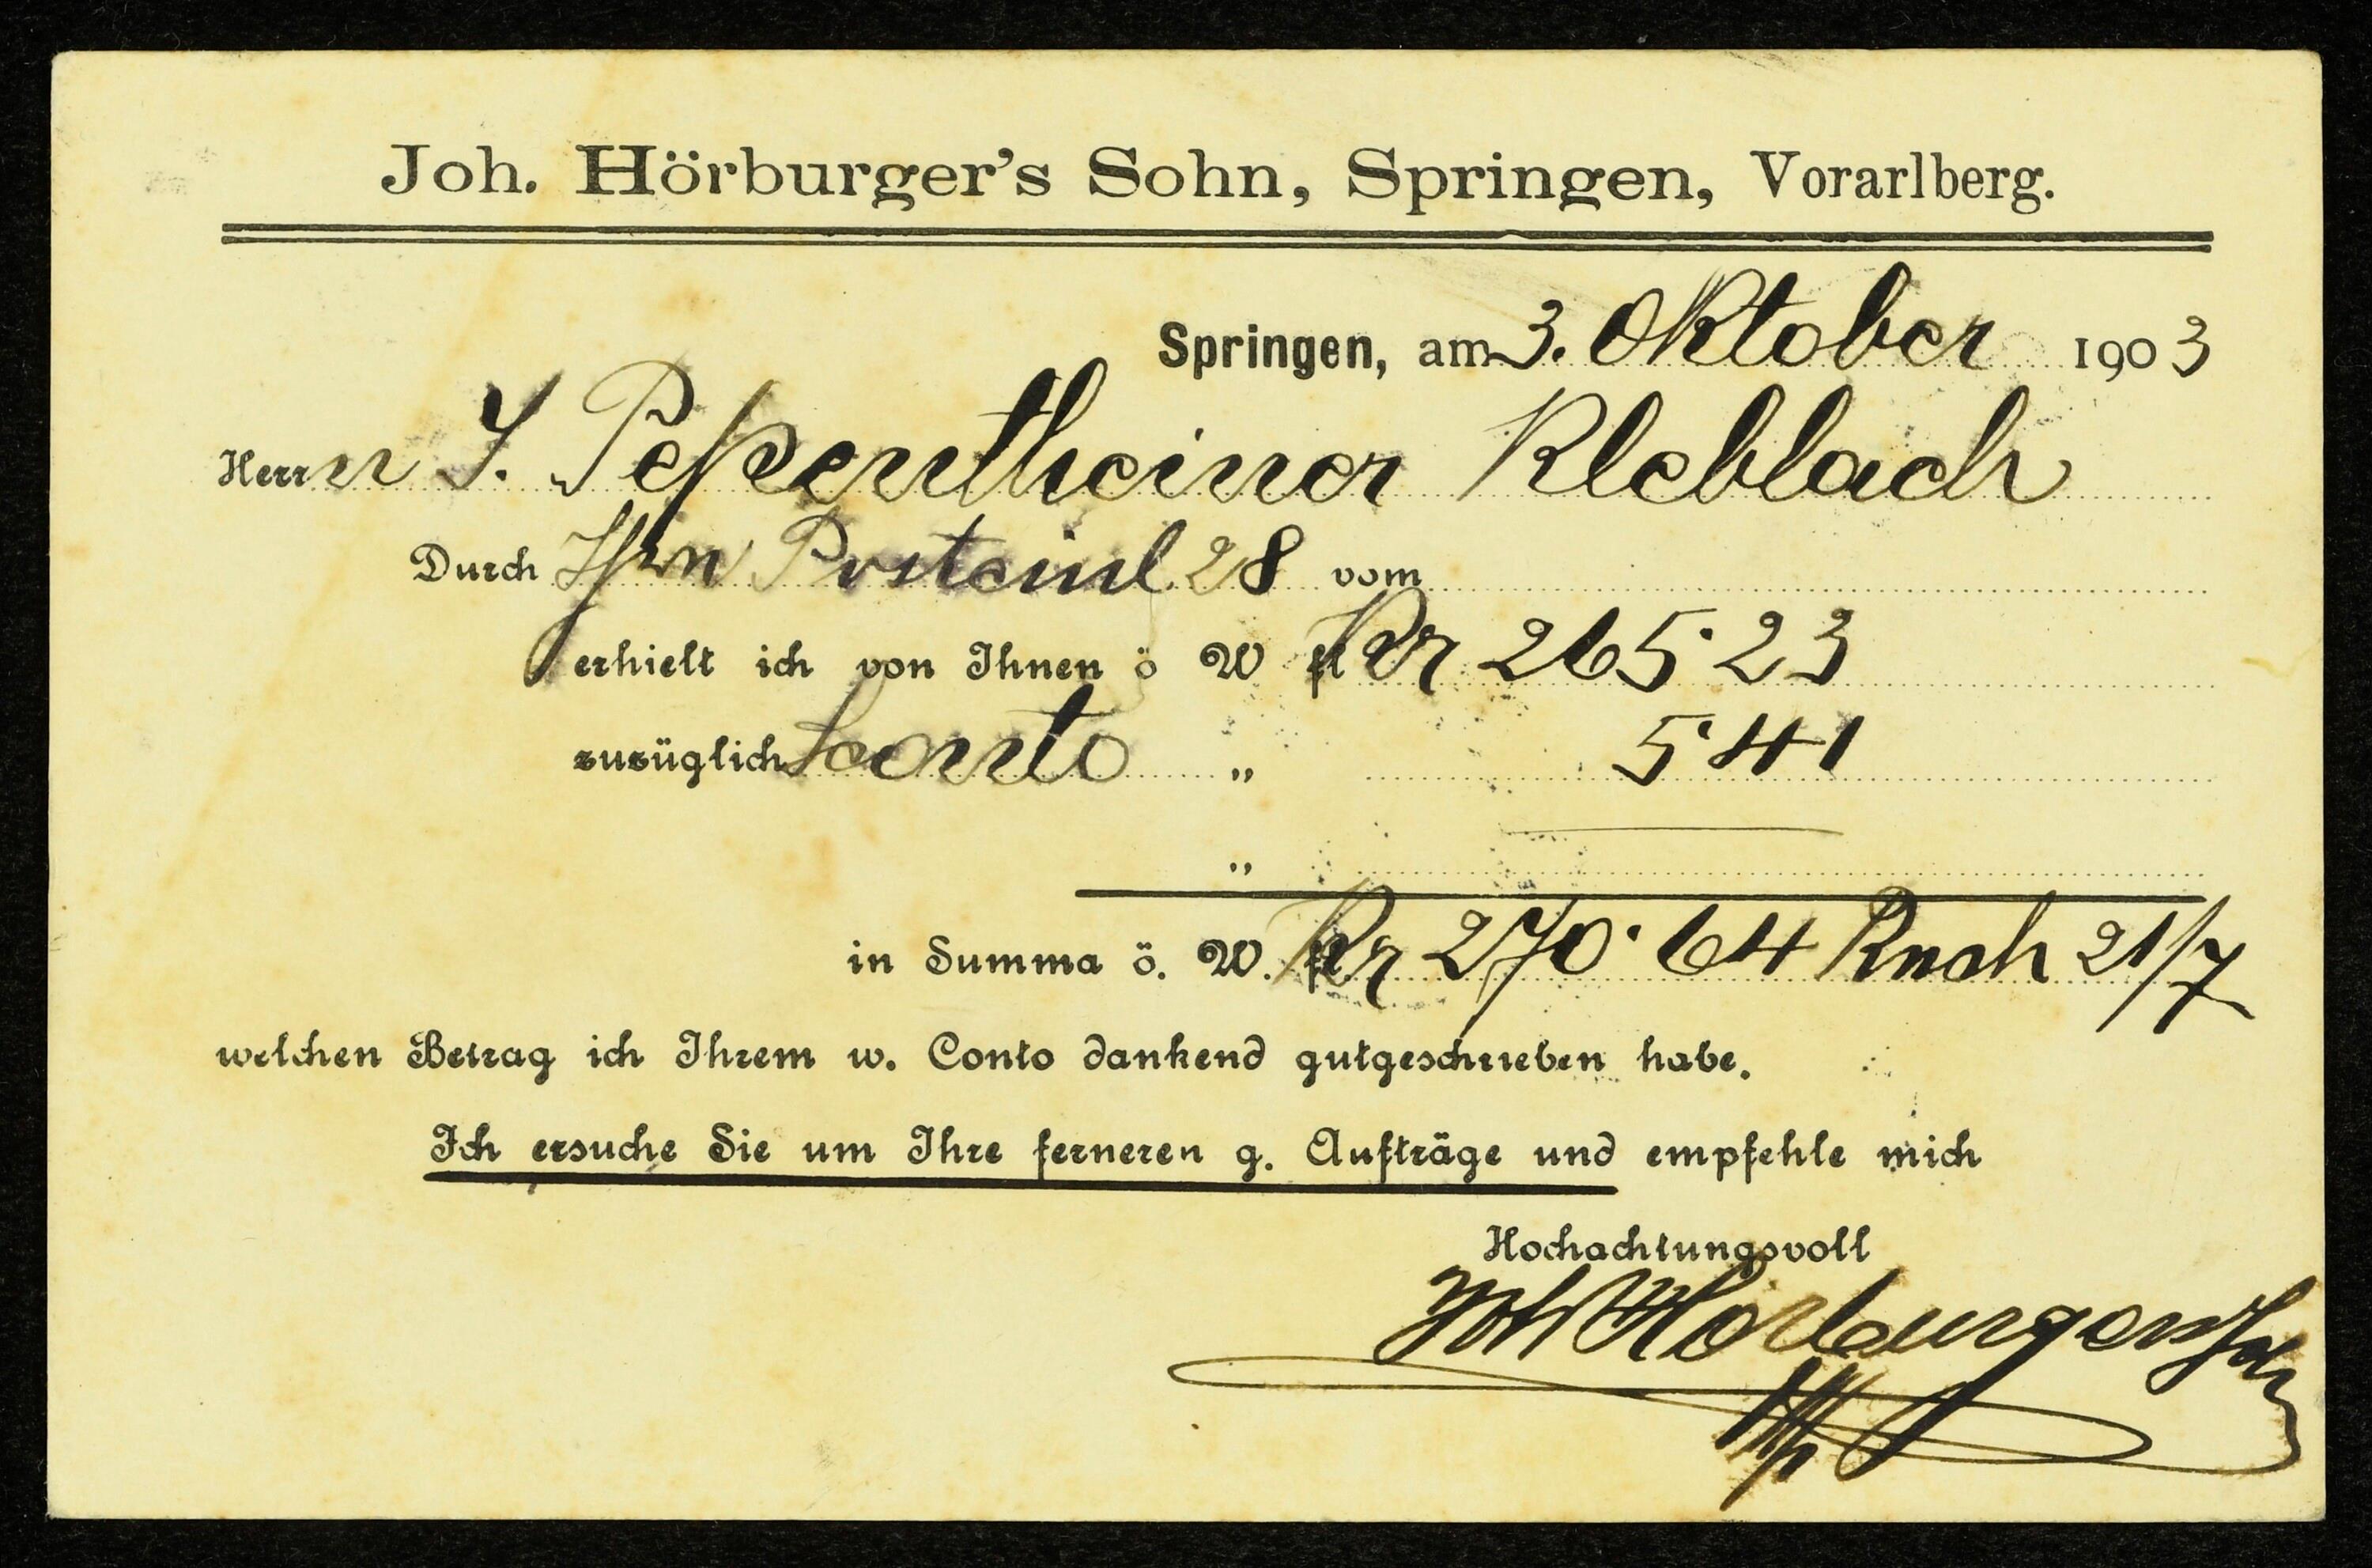 Joh. Hörburger's Sohn, Springen, Vorarlberg.
Springen, am 3. Oktober 1903
Herrn J. Peßentheiner Kleblach
Durch Hrn 28 vom
erhielt ich von Ihnen ö W fl Kr 265·23
zuzüglich Sconto „ 5·41
„
in Summa ö. W. fl Kr 270·64 Rnch 21/7
welchen Betrag ich Ihrem w. Conto dankend gutgeschrieben habe.
Ich ersuche Sie um Ihre ferneren g. Aufträge und empfehle mich
Hochachtungsvoll
Joh Hörburgers Sohn